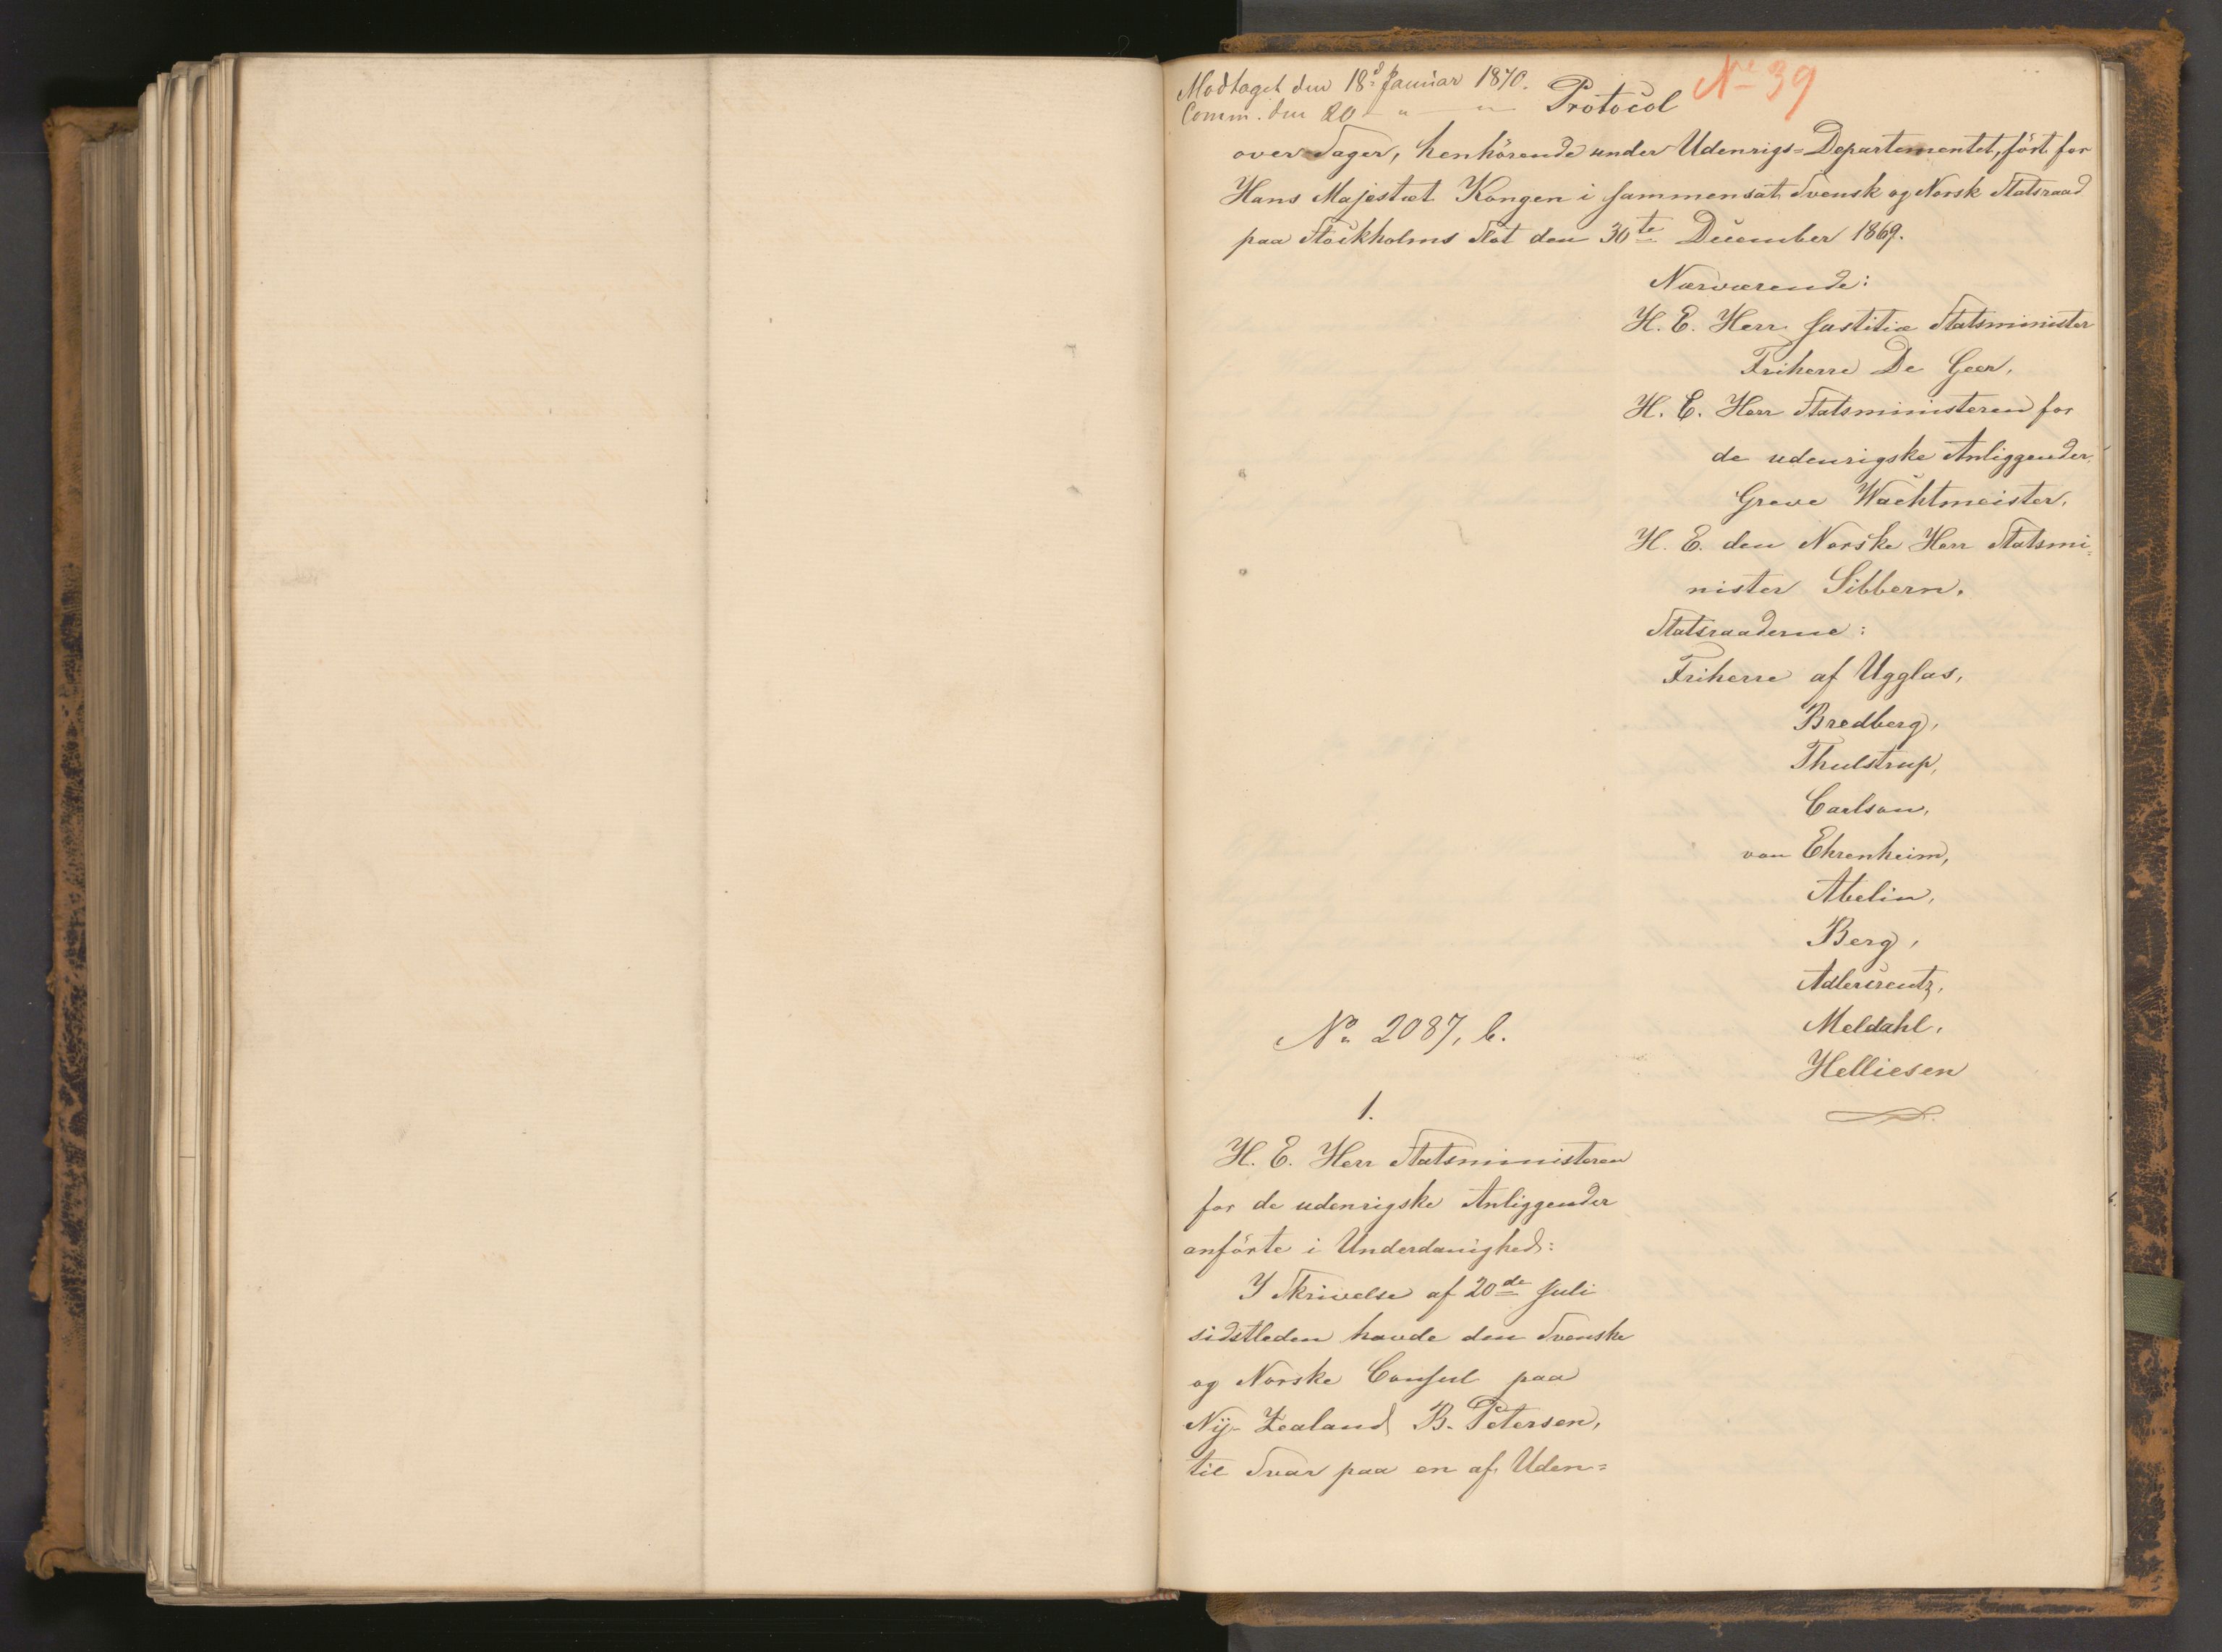 Modtaget den 18d Januar 1870.
Comm. den 20 " — " —
No 39
Protocol
over Sager, henhörende under Udenrigs-Departementet, fört for
Hans Majestæt Kongen i sammensat Svensk og Norsk Statsraad
paa Stockholms Slot den 30te December 1869.
Nærværende:
H. E. Herr Justitiæ Statsminister
Friherre De Geer,
H. E. Herr Statsministeren for
de udenrigske Anliggender,
Greve Wachtmeister,
H. E. den Norske Herr Statsmi=
nister Sibbern.
Statsraaderne:
Friherre af Ugglas,
Bredberg,
Thulstrup,
Carlson,
von Ehrenheim,
Abelin,
Berg,
Adlercreutz,
Meldahl,
Helliesen
No 2087, b.
1.
H. E. Herr Statsministeren
for de udenrigske Anliggender
anförte i Underdanighed:
I Skrivelse af 20de Juli
sidstleden havde den Svenske
og Norske Consul paa
Ny-Zealand B. Petersen,
til Svar paa en af Uden=